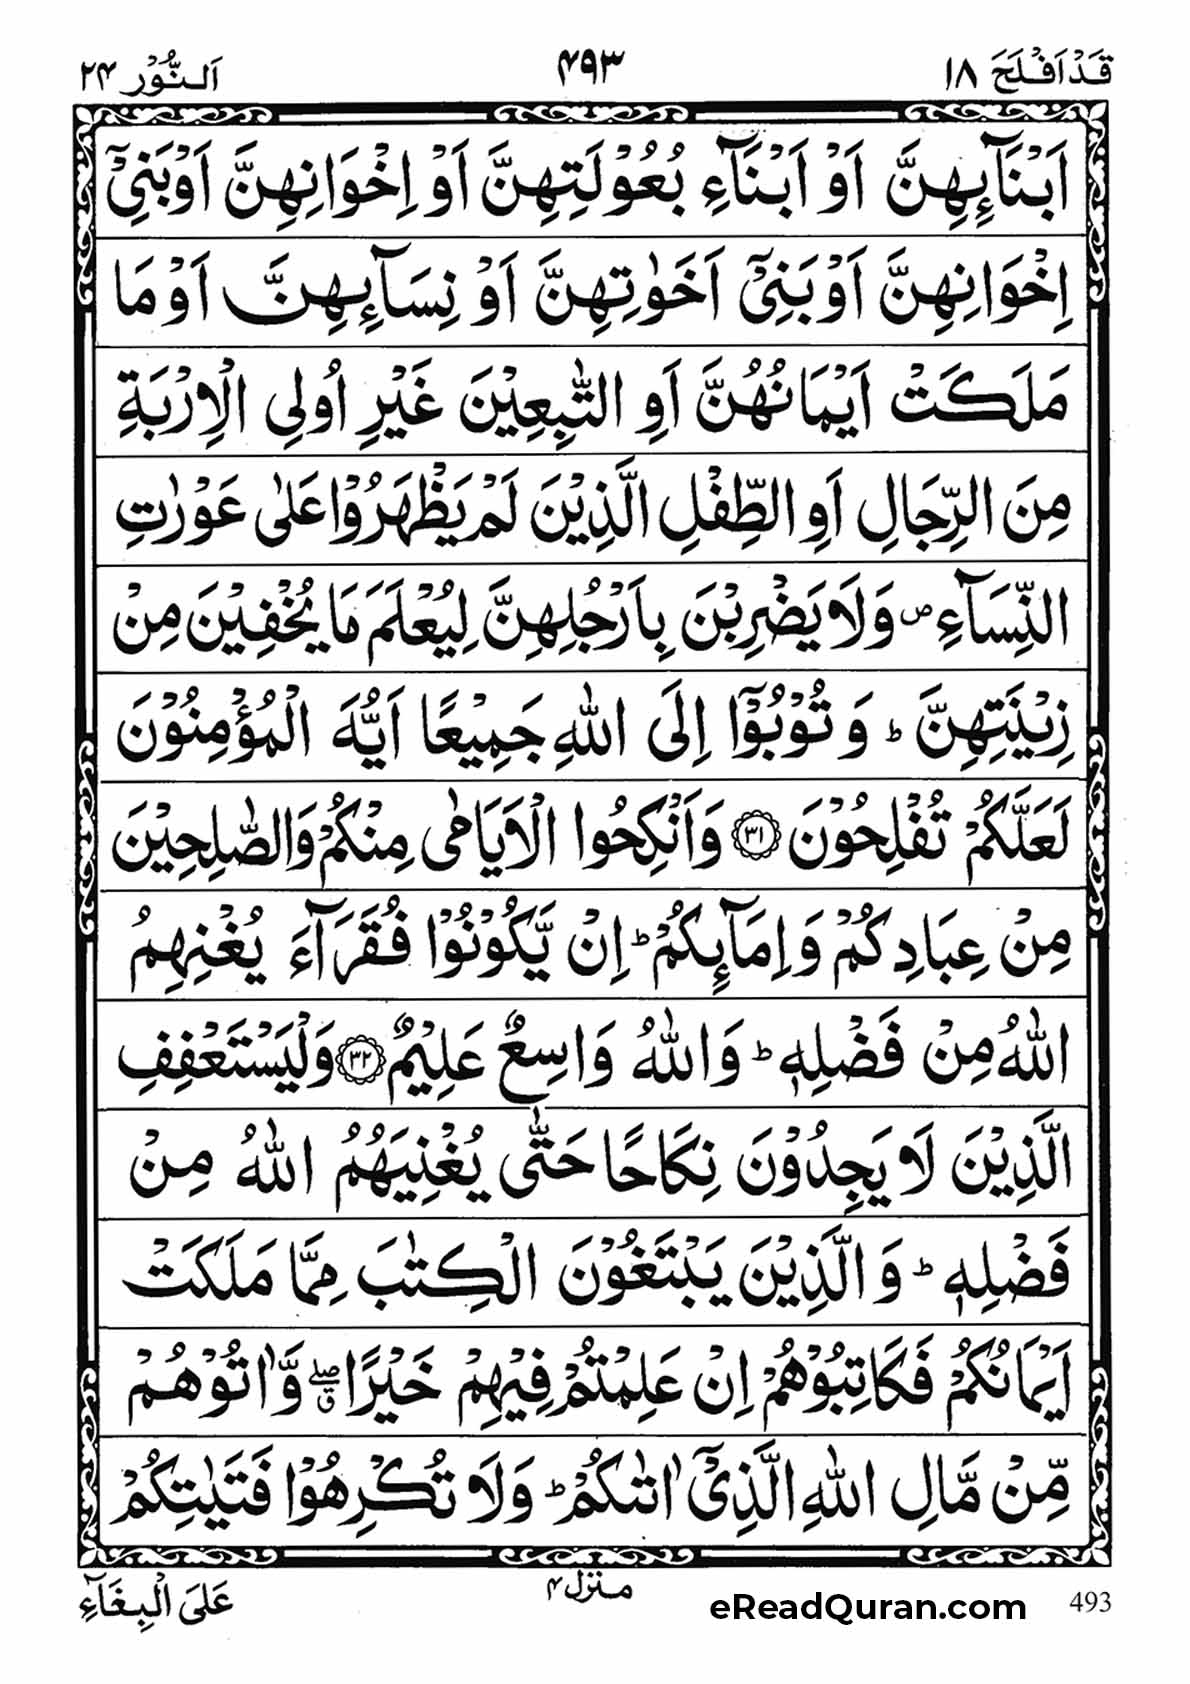 قَدْ اَفْلَحَ ۱۸
۴۹۳
اَلنُّوْر ۲۴
اَبْنَآئِهِنَّ اَوْ اَبْنَآءِ بُعُوْلَتِهِنَّ اَوْ اِخْوَانِهِنَّ اَوْ بَنِیْۤ
اِخْوَانِهِنَّ اَوْ بَنِیْۤ اَخَوٰتِهِنَّ اَوْ نِسَآئِهِنَّ اَوْ مَا
مَلَكَتْ اَیْمَانُهُنَّ اَوِ التّٰبِعِیْنَ غَیْرِ اُولِی الْاِرْبَةِ
مِنَ الرِّجَالِ اَوِ الطِّفْلِ الَّذِیْنَ لَمْ یَظْهَرُوْا عَلٰی عَوْرٰتِ
النِّسَآءِ ۪ وَلَا یَضْرِبْنَ بِاَرْجُلِهِنَّ لِیُعْلَمَ مَا یُخْفِیْنَ مِنْ
زِیْنَتِهِنَّ ؕ وَ تُوْبُوْۤا اِلَی اللّٰهِ جَمِیْعًا اَیُّهَ الْمُؤْمِنُوْنَ
لَعَلَّكُمْ تُفْلِحُوْنَ ۝۳۱ وَاَنْكِحُوا الْاَیَامٰی مِنْكُمْ وَالصّٰلِحِیْنَ
مِنْ عِبَادِكُمْ وَاِمَآئِكُمْ ؕ اِنْ یَّكُوْنُوْا فُقَرَآءَ یُغْنِهِمُ
اللّٰهُ مِنْ فَضْلِهٖ ؕ وَاللّٰهُ وَاسِعٌ عَلِیْمٌ ۝۳۲ وَلْیَسْتَعْفِفِ
الَّذِیْنَ لَا یَجِدُوْنَ نِكَاحًا حَتّٰی یُغْنِیَهُمُ اللّٰهُ مِنْ
فَضْلِهٖ ؕ وَالَّذِیْنَ یَبْتَغُوْنَ الْكِتٰبَ مِمَّا مَلَكَتْ
اَیْمَانُكُمْ فَكَاتِبُوْهُمْ اِنْ عَلِمْتُمْ فِیْهِمْ خَیْرًا ۖۗ وَّاٰتُوْهُمْ
مِّنْ مَّالِ اللّٰهِ الَّذِیْۤ اٰتٰىكُمْ ؕ وَلَا تُكْرِهُوْا فَتَیٰتِكُمْ
عَلَی الْبِغَآءِ
منزل ۴
eReadQuran.com
493